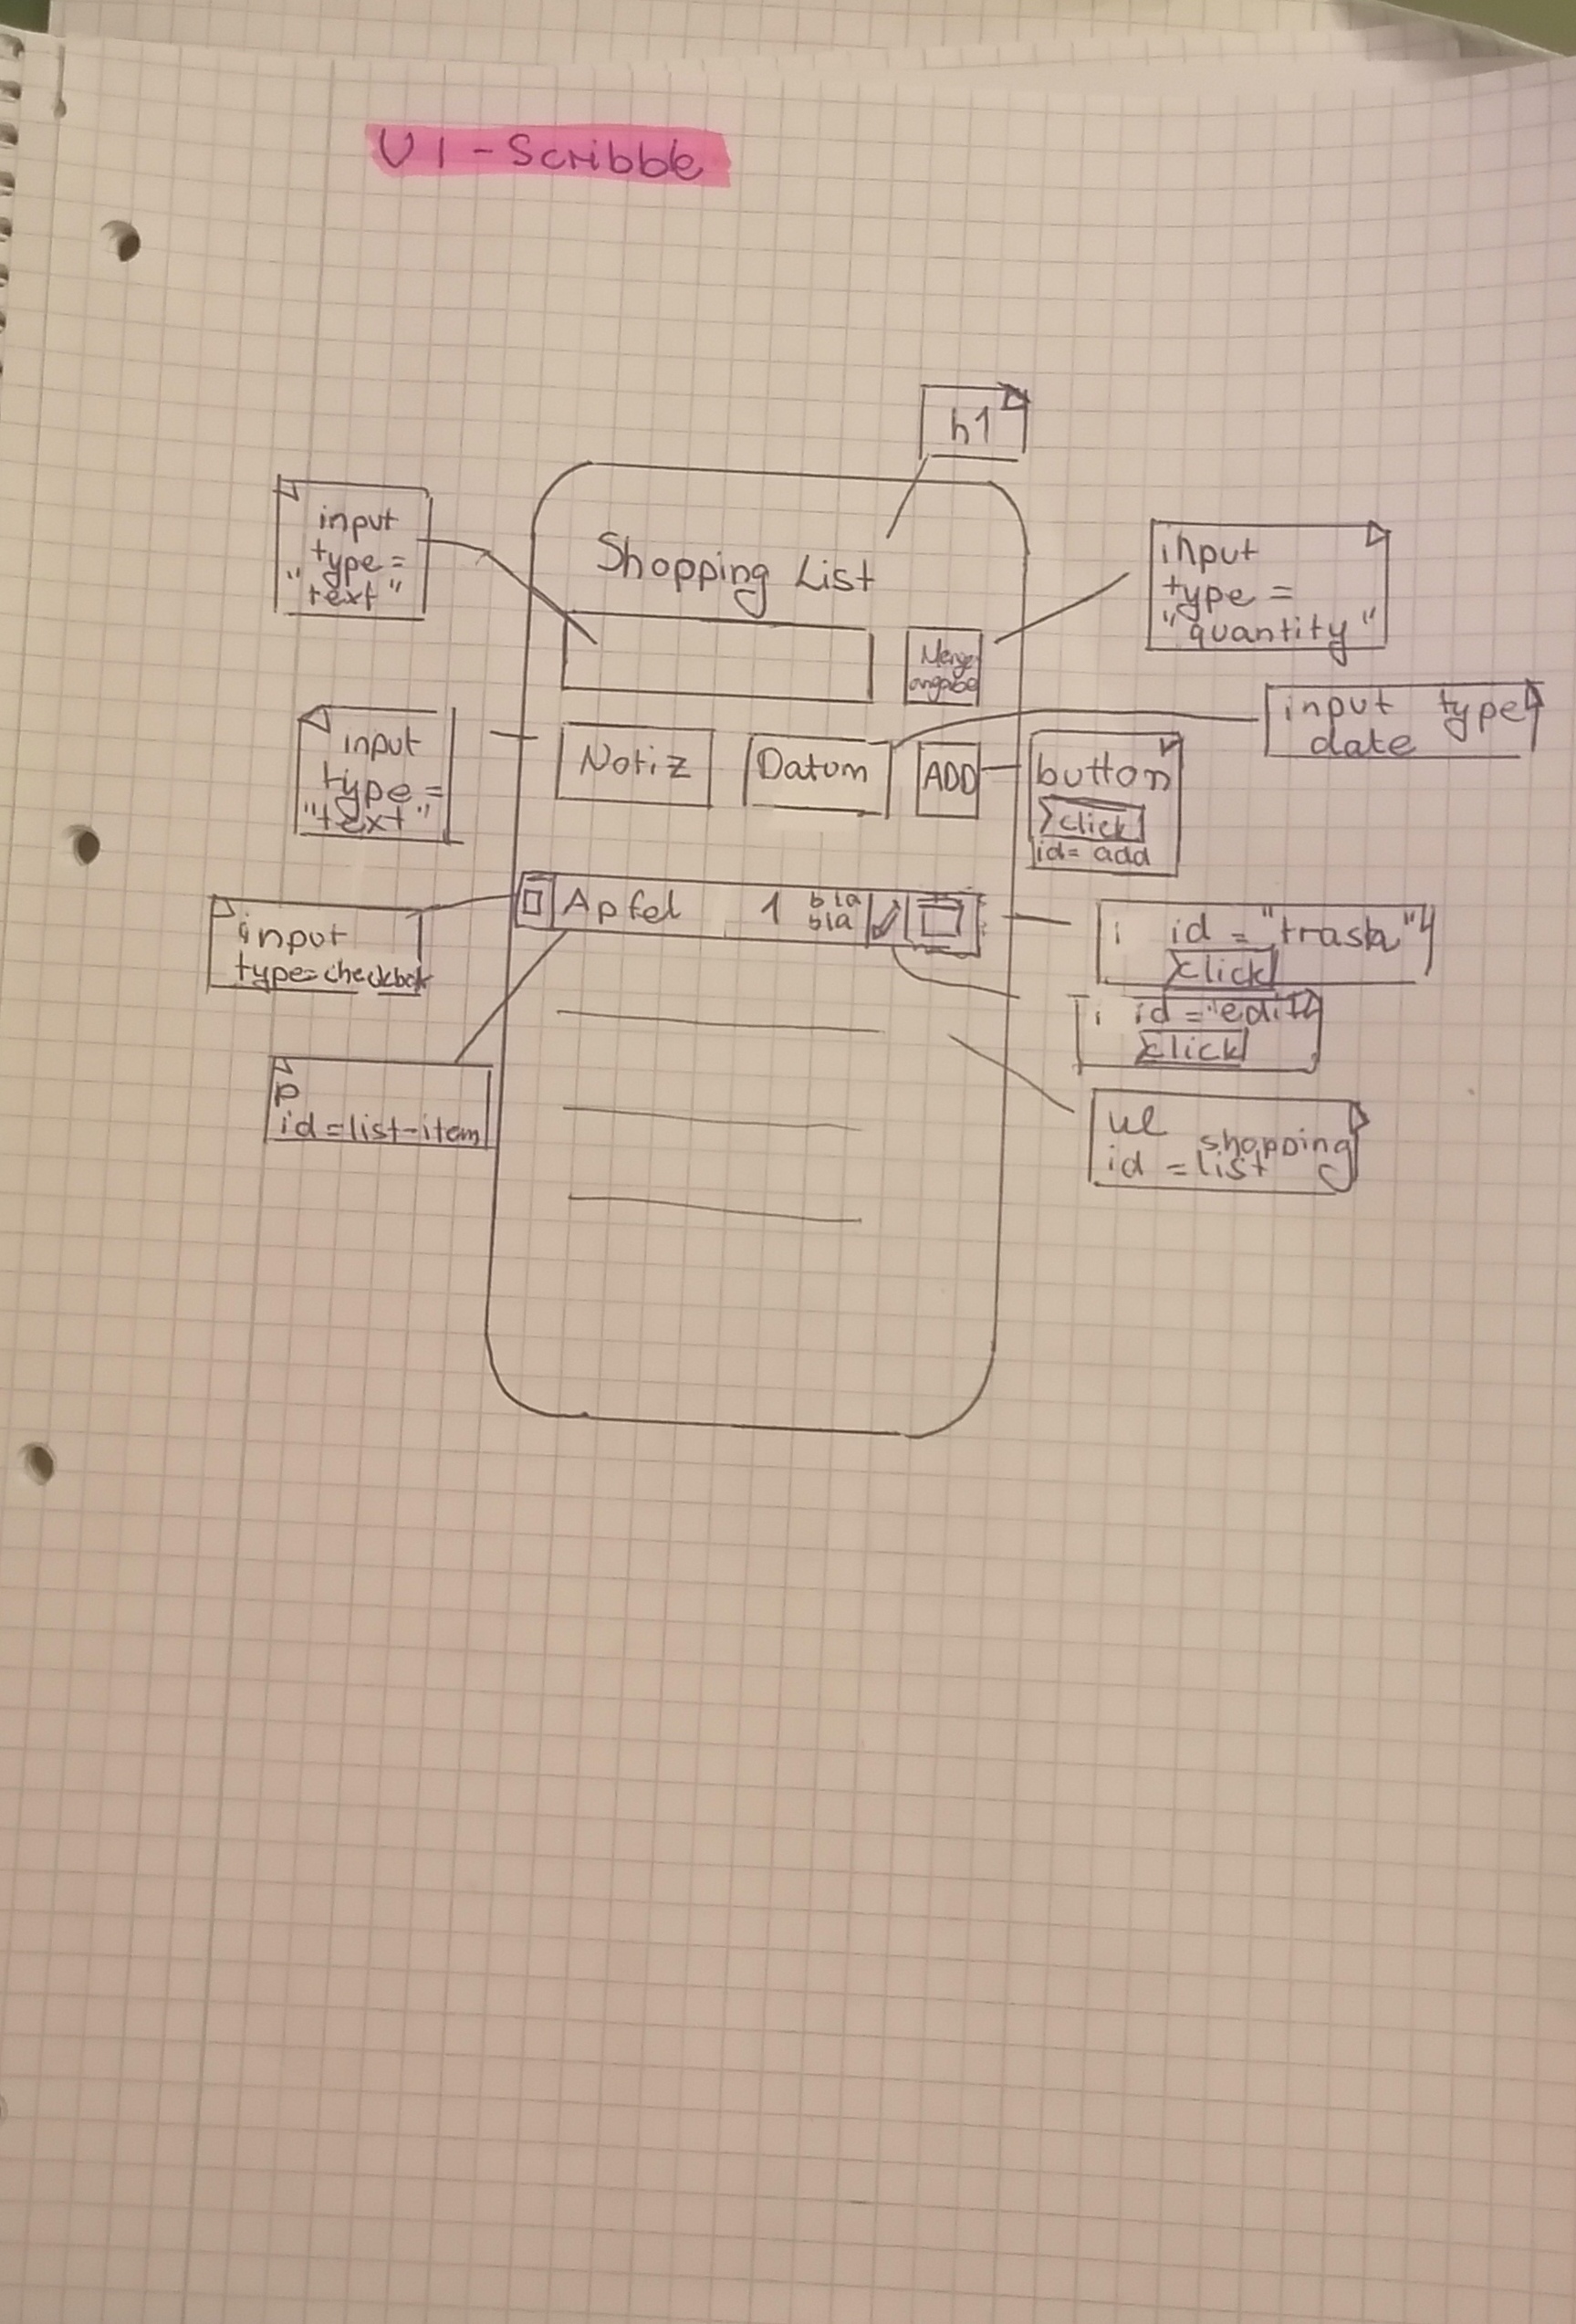 UI-Scribble
h1
input
type =
"text"
Shopping List
input
type =
"quantity"
Menge
angabe
input type
date
input
type =
"text"
Notiz
Datum
ADD
button
click
id= add
input
type=checkbox
Apfel 1 bla
bla
i id = "trash"
click
i id = "edit
click
p
id=list-item
ul
id = shopping
list